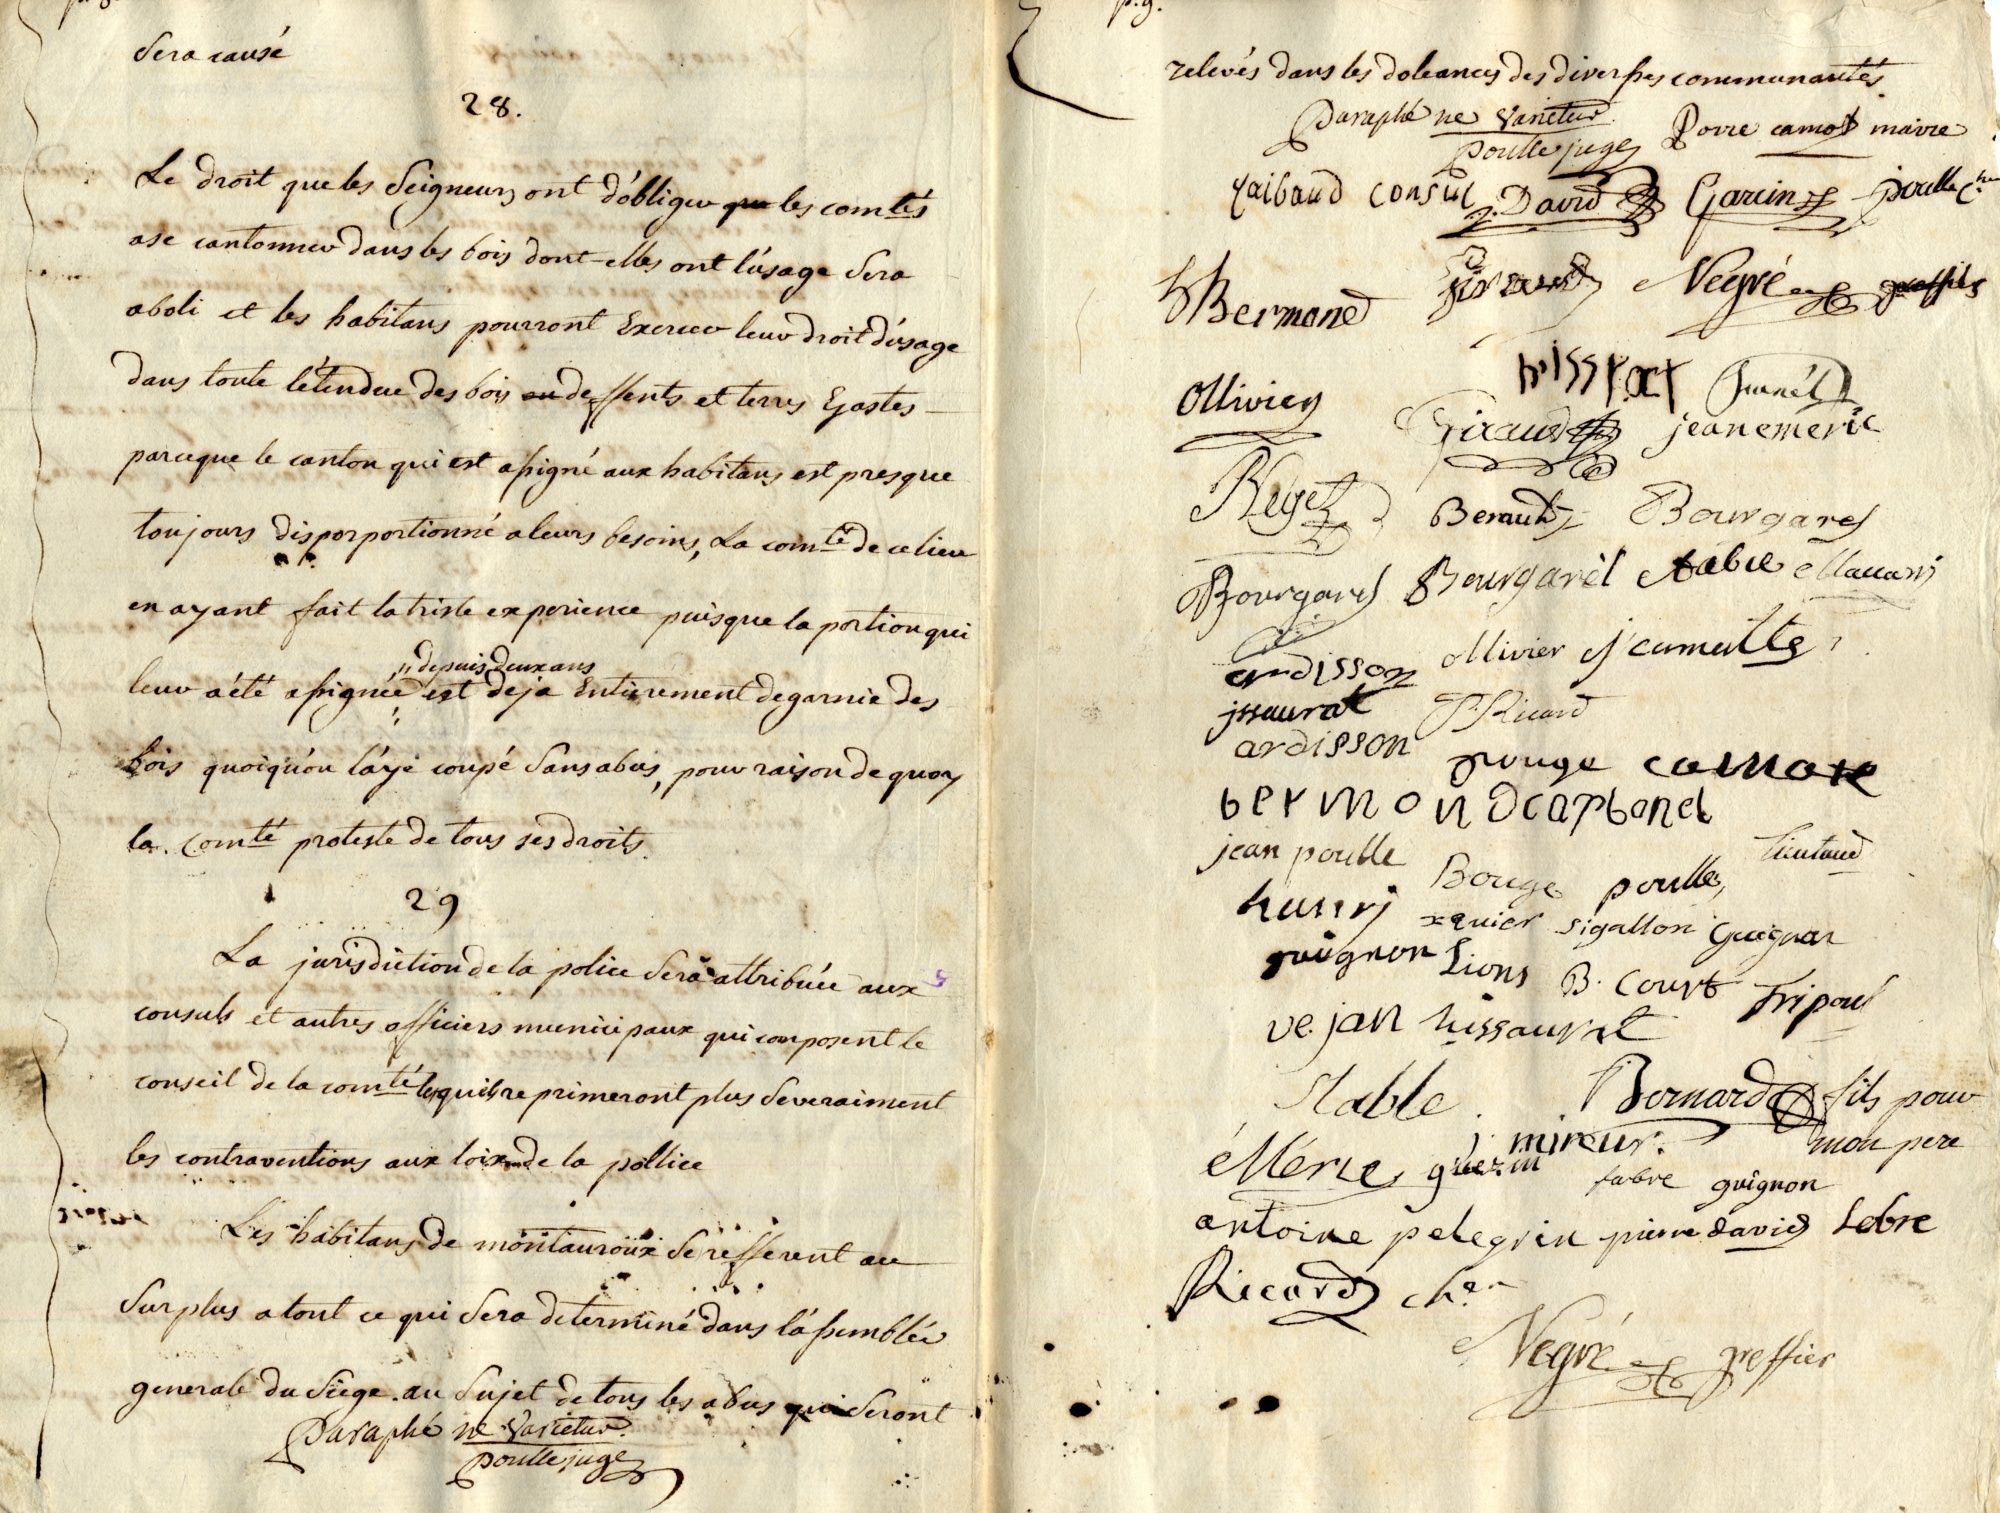 Sera causé
28.
Le droit que les Seigneurs ont d'obliger que les comtés
a se cantonner dans les bois dont elles ont l'usage Sera
aboli et les habitans pourront Exercer leur droit d'usage
dans toute l'étendue des bois deffents et terres Gastes
parceque le canton qui est assigné aux habitans est presque
toujours disporportionné a leurs besoins, La comté de ce lieu
en ayant fait la triste experience puisque la portion qui
"depuis deux ans
leur a été assignée est deja Entierement degarnie des
bois quoiqu'on l'aye coupé Sans abus, pour raison de quoy
la comté proteste de tous ses droits
29
La jurisdiction de la police Sera attribuée aux
consuls et autres officiers municipaux qui composent le
conseil de la comté lesquels reprimeront plus Severaiment
les contraventions aux loix de la pollice
Les habitans de montauroux Se refferent au
Surplus a tout ce qui Sera determiné dans l'assemblée
generale du Siege au Sujet de tous les abus qui Seront
Paraphé ne Varietur
poulle juge
p. 9.
relevés dans les doleances des diverses communautés.
Paraphé ne Varietur
poulle juge
maire
consul J. David Garcin poulle
Bermond Negré
Ollivier
Giraud jean emeric
Berault Bourgarel
Bourgarel Bourgarèl
ardisson ollivier
issaurat P. Ricard
ardisson rouge camate
bermond capbonel
jean poulle Bouge poulle, Lieutaud
hanrj sigallon Guignon
guignon Lions B. Court Tripoul
ve. jan hissaurat
Stable Bernard fils pour
mon pere
J. mireur.
éMéric guezin fabre guignon
antoine pelegrin pierre david Lebre
Ricard cher
Negré greffier